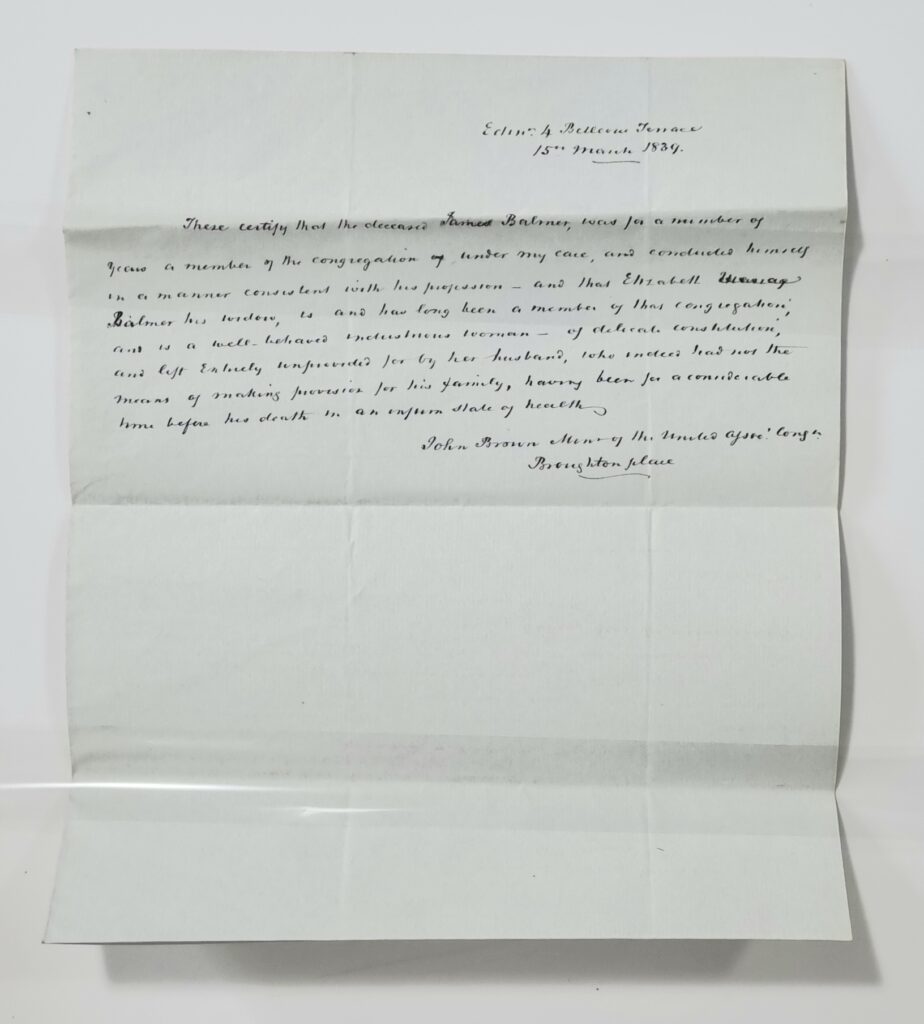 Edinr. 4 Bellevue Terrace
15th March 1839.
These certify that the deceased James Balmer, was for a number of
years a member of the congregation under my care, and conducted himself
in a manner consistent with his profession – and that Elizabeth
Balmer his widow, is and has long been a member of that congregation,
and is a well-behaved industrious woman – of delicate constitution,
and left Entirely unprovided for by her husband, who indeed had not the
means of making provision for his family, having been for a considerable
time before his death in an infirm state of health
John Brown Minr of the United Assoc. Congn.
Broughton place